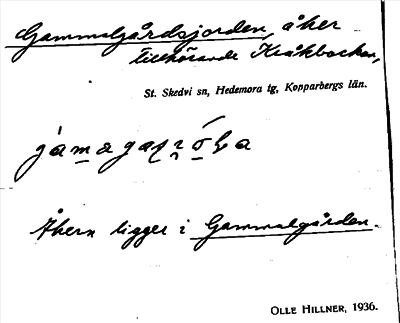 Gammalgårdsjorden, åker
tillhörande Kråkbacken,
St. Skedvi sn, Hedemora tg, Kopparbergs län.
Åkern ligger i Gammalgården.
OLLE HILLNER, 1936.